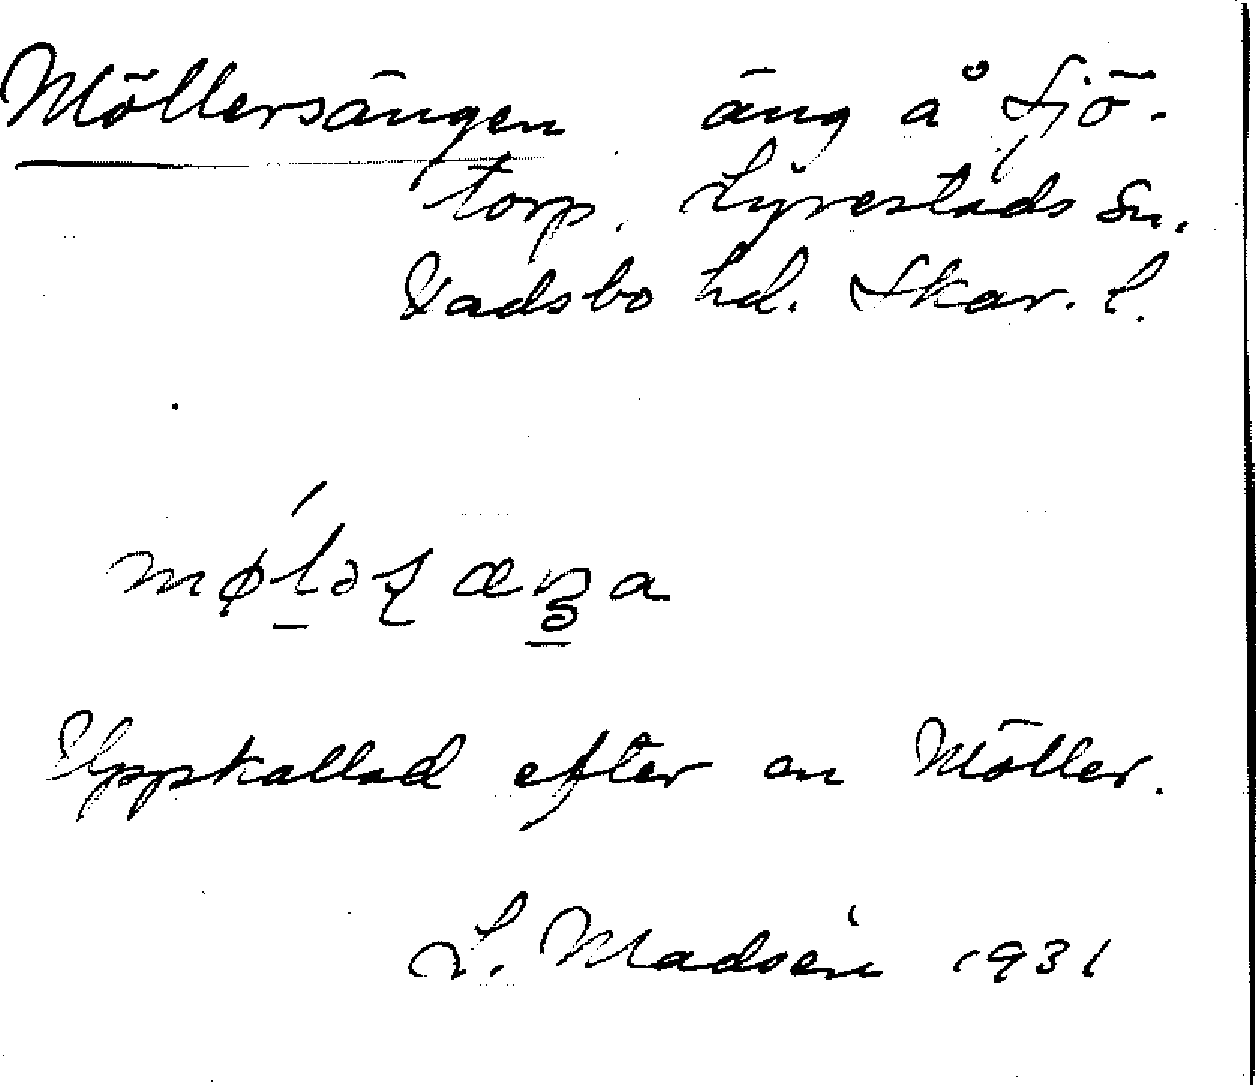 Möllersängen äng å Sjö-
torp, Lyrestads sn.
Vadsbo hd. Skar. l.
Uppkallad efter en Möller.
L. Madsén 1931